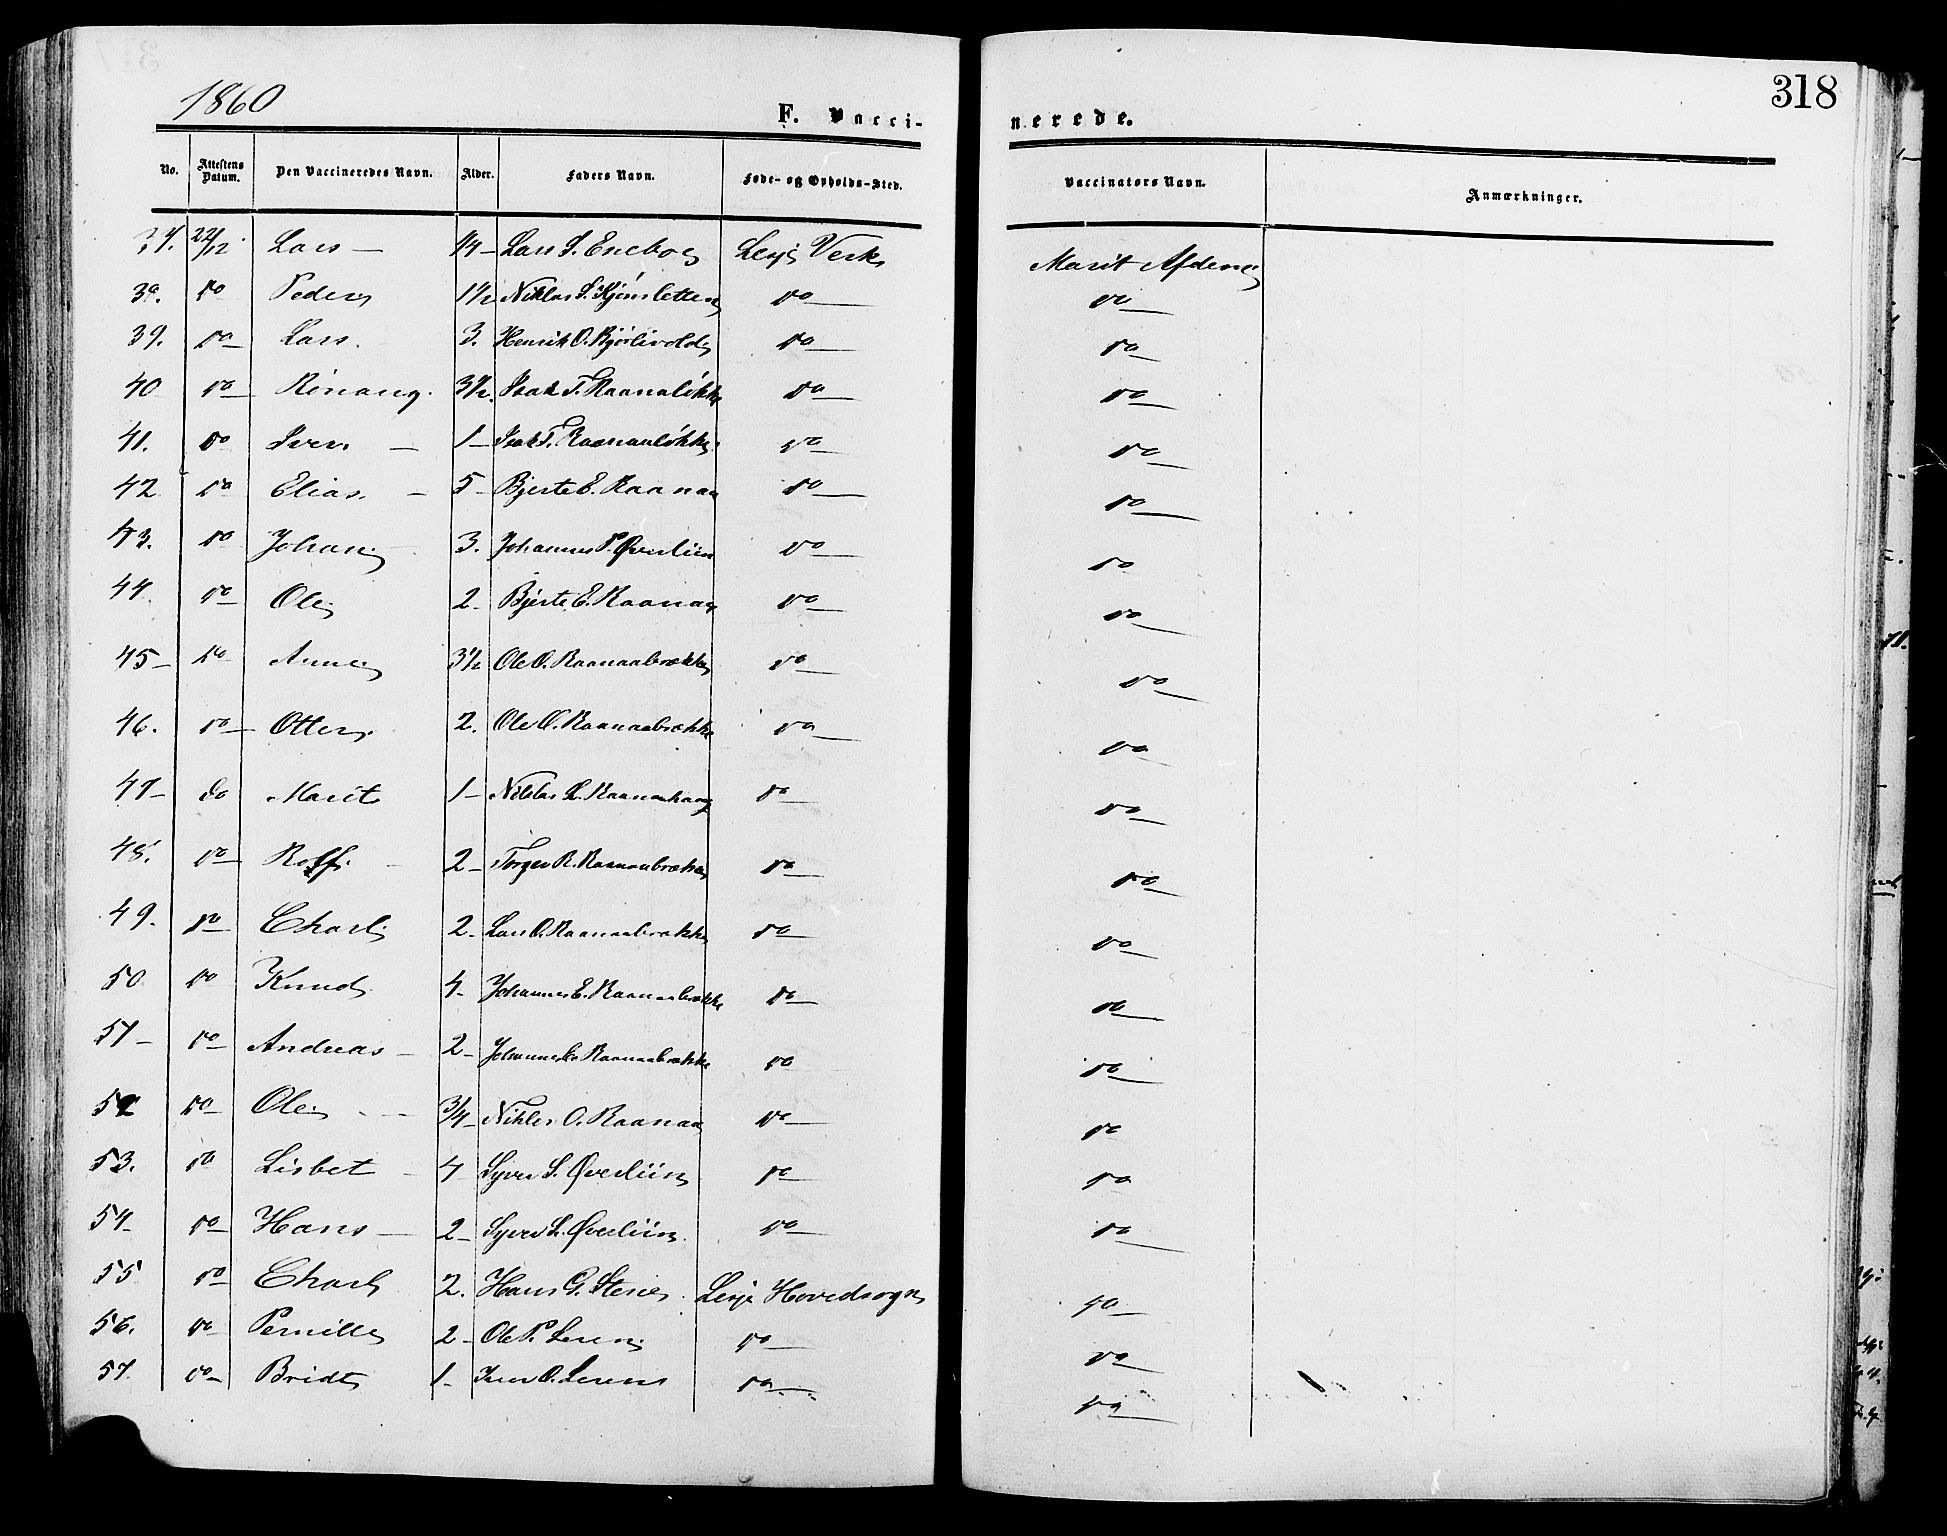 1860
F. Vacci-
nerede.
318
No. Attestens Datum. Den Vaccineredes Navn. Alder. Faders Navn. Føde- og Opholds-Sted. Vaccinators Navn. Anmærkninger.
37. 22/12 Lars — 1/4 — Lars S. Enebo Lesje Verk Marit Afdem
38. do Peder 1 1/2 Niklas S. do — do —
39. do — Lars. 3. Henrik O. Bjørlivold do — do —
40 do — 3 1/2. Isak T. Raanaløkke do — do —
41. do Iver — 1 — Isak T. Raanaaløkke do — do —
42 do Elias. — 5 — Bjerte E. Raanaa do — do —
43. do Johan 3. Johannes P. Øverliin do — do —
44. do — Ole 2 — Bjerte E. Raanaa do — do —
45 — do Anne 3 1/2 Ole O. Raanaabrække do — do —
46. do — Otter 2. Ole O. Raanaabrække do — do —
47 — do Marit 1 — Niklas Raanaahaug do — do —
48. do — Rolf. 2 — Torger R. Raanaabrække do — do —
49. do — Charl. 2 — Lars O. Raanaabrække do — do —
50. do Knud 4 — Johannes E. Raanaabrække do — do —
51 — do — Andreas — 2 — Johannes Raanaabrække do do —
52 do — Ole — 3/4 — Niklas O. Raanaa do — do —
53. do Lisbet — 4 Syver S. Øverliin do — do —
54 — do — Hans — 2 — Syver S. Øverliin do — do —
55 do — Charl. 2. Hans G. Lesje Hovedsogn do —
56. do Pernille 2 — Ole P. do — do —
57. do — Bridt 1 — Iver O. do — do —